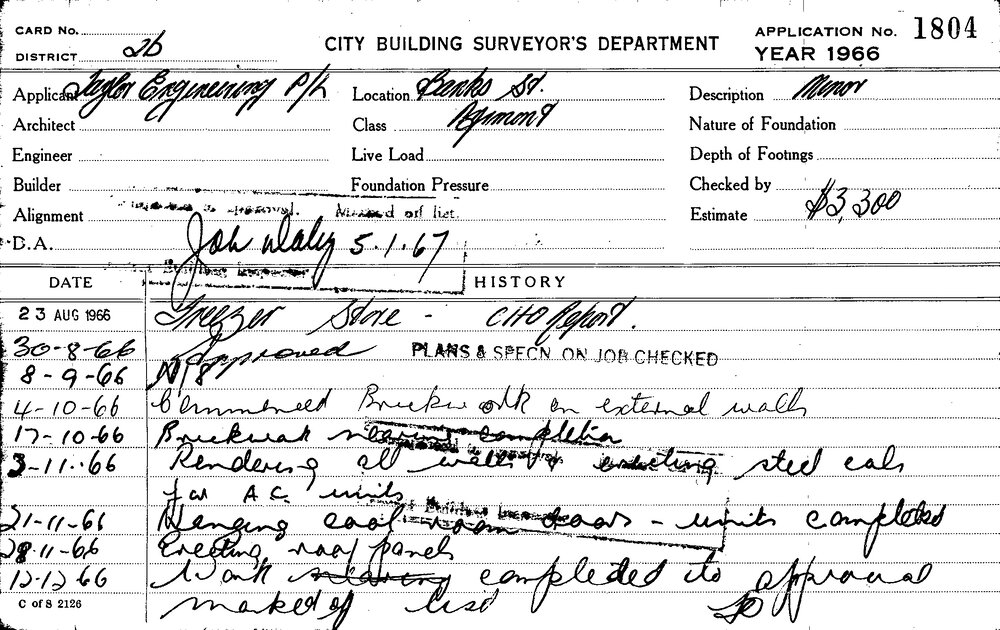 CARD No.
DISTRICT 2b
CITY BUILDING SURVEYOR'S DEPARTMENT
APPLICATION No. 1804
YEAR 1966
Applicant Taylor Engineering P/L
Location Banks St.
Description Minor
Architect
Class Agimont
Nature of Foundation
Engineer
Live Load
Depth of Footings
Builder
Foundation Pressure
Checked by
Alignment
approval. Marked off list.
Estimate $3,300
B.A.
5.1.67
Building
DATE HISTORY
23 AUG 1966 Freezer Store - CHO Report.
30-8-66 Approved PLANS & SPECN ON JOB CHECKED
8-9-66 N/S
4-10-66 Commenced Brickwork on external walls
17-10-66 Brickwork nearing completion
3-11-66 Rendering all walls & erecting steel cols
for A.C. units
21-11-66 Hanging cool room doors - units completed
28-11-66 Erecting roof panels
12-12-66 Work nearing completed to approval
marked of list
C of S 2126